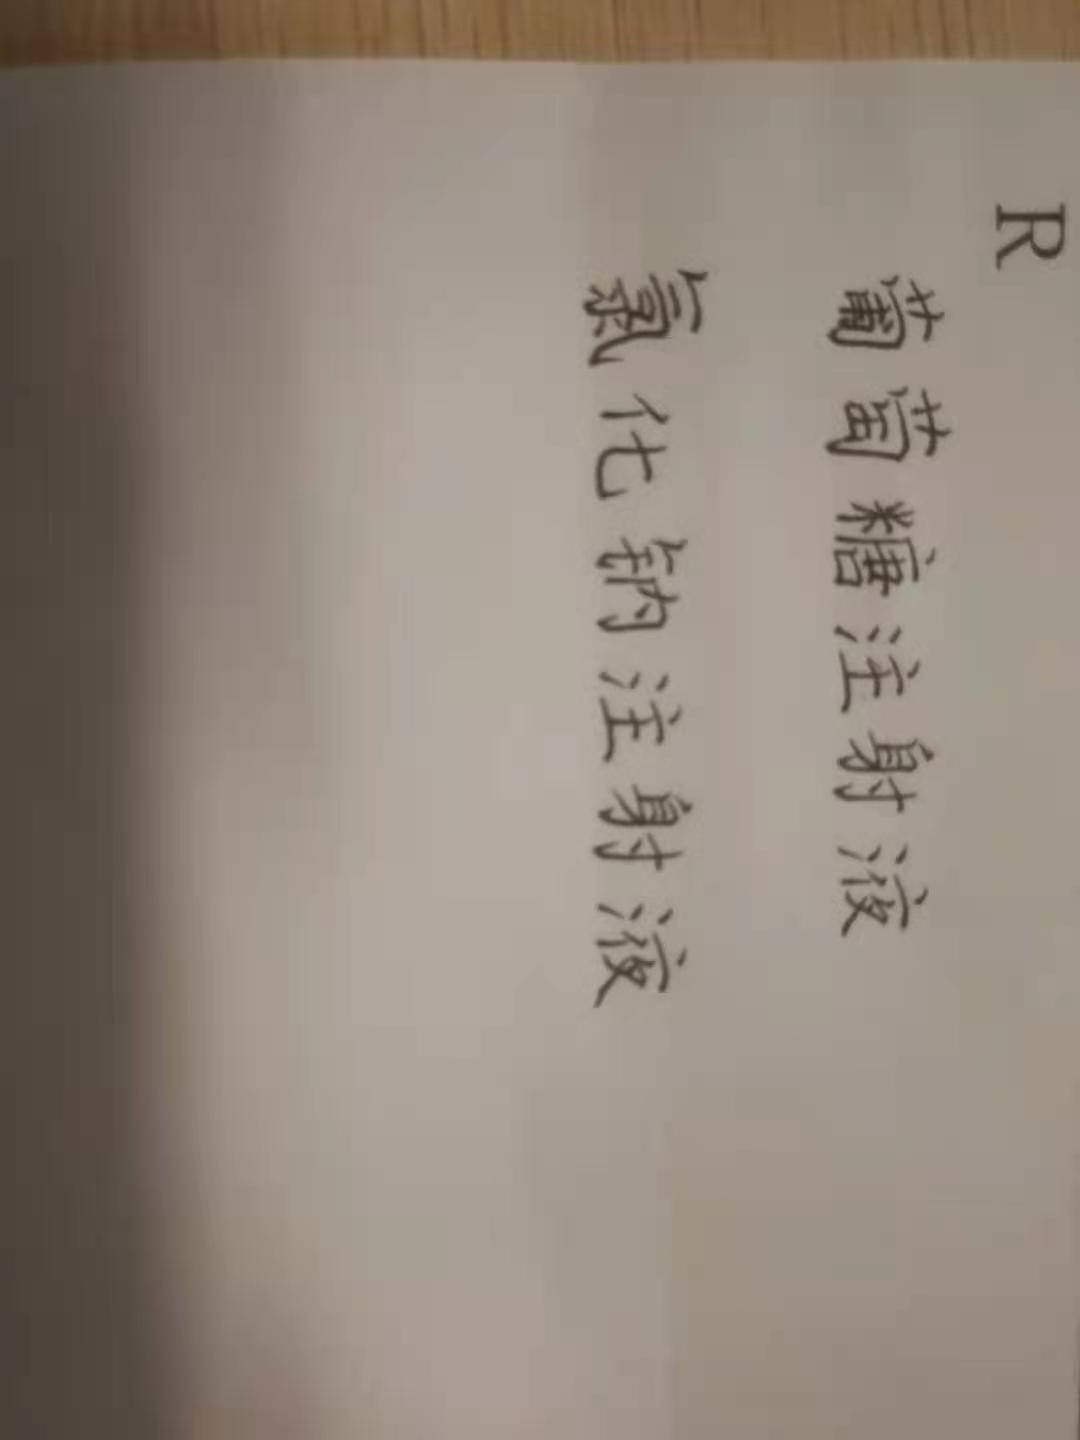 R
葡萄糖注射液
氯化钠注射液